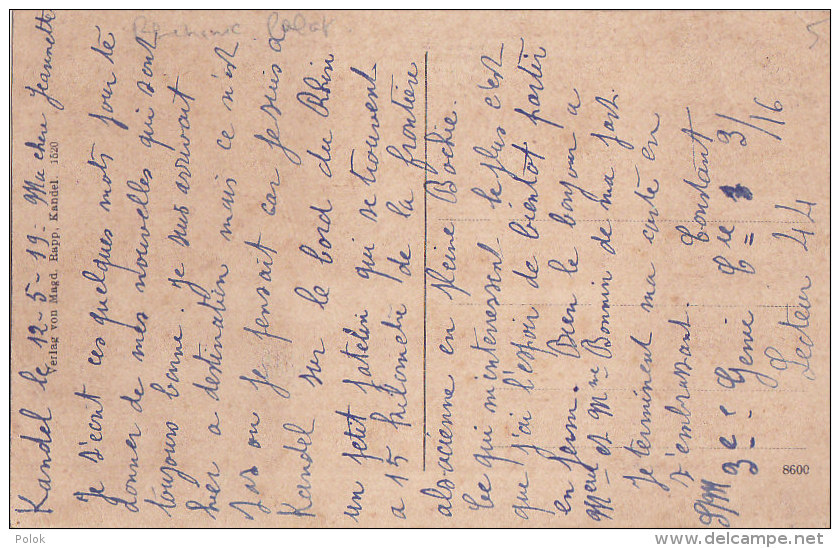 Kandel le 12-5-19- Ma chere Jeannette
Je t'ecrit ces quelques mots pour te
donner de mes nouvelles qui sont
toujours bonne. Je suis arrivait
hier a destination mais ce n'est
pas ou je pensait car je suis a
Kandel sur le bord du Rhin
un petit patelin qui se trouvent
a 15 kilometre de la frontiere
alsacienne en pleine Bochie.
Ce qui m'interressent le plus c'est
que j'ai l'espoir de bientot partir
en perm. Bien le bonjour a
Meur et Mme Bonnin de ma part.
Je terminent ma carte en
t'embrassant. Constant
3e Genie Cie 3/16
Secteur 44
Verlag von Magd. Rapp, Kandel. 1520
8600
Polok
delcampe.net